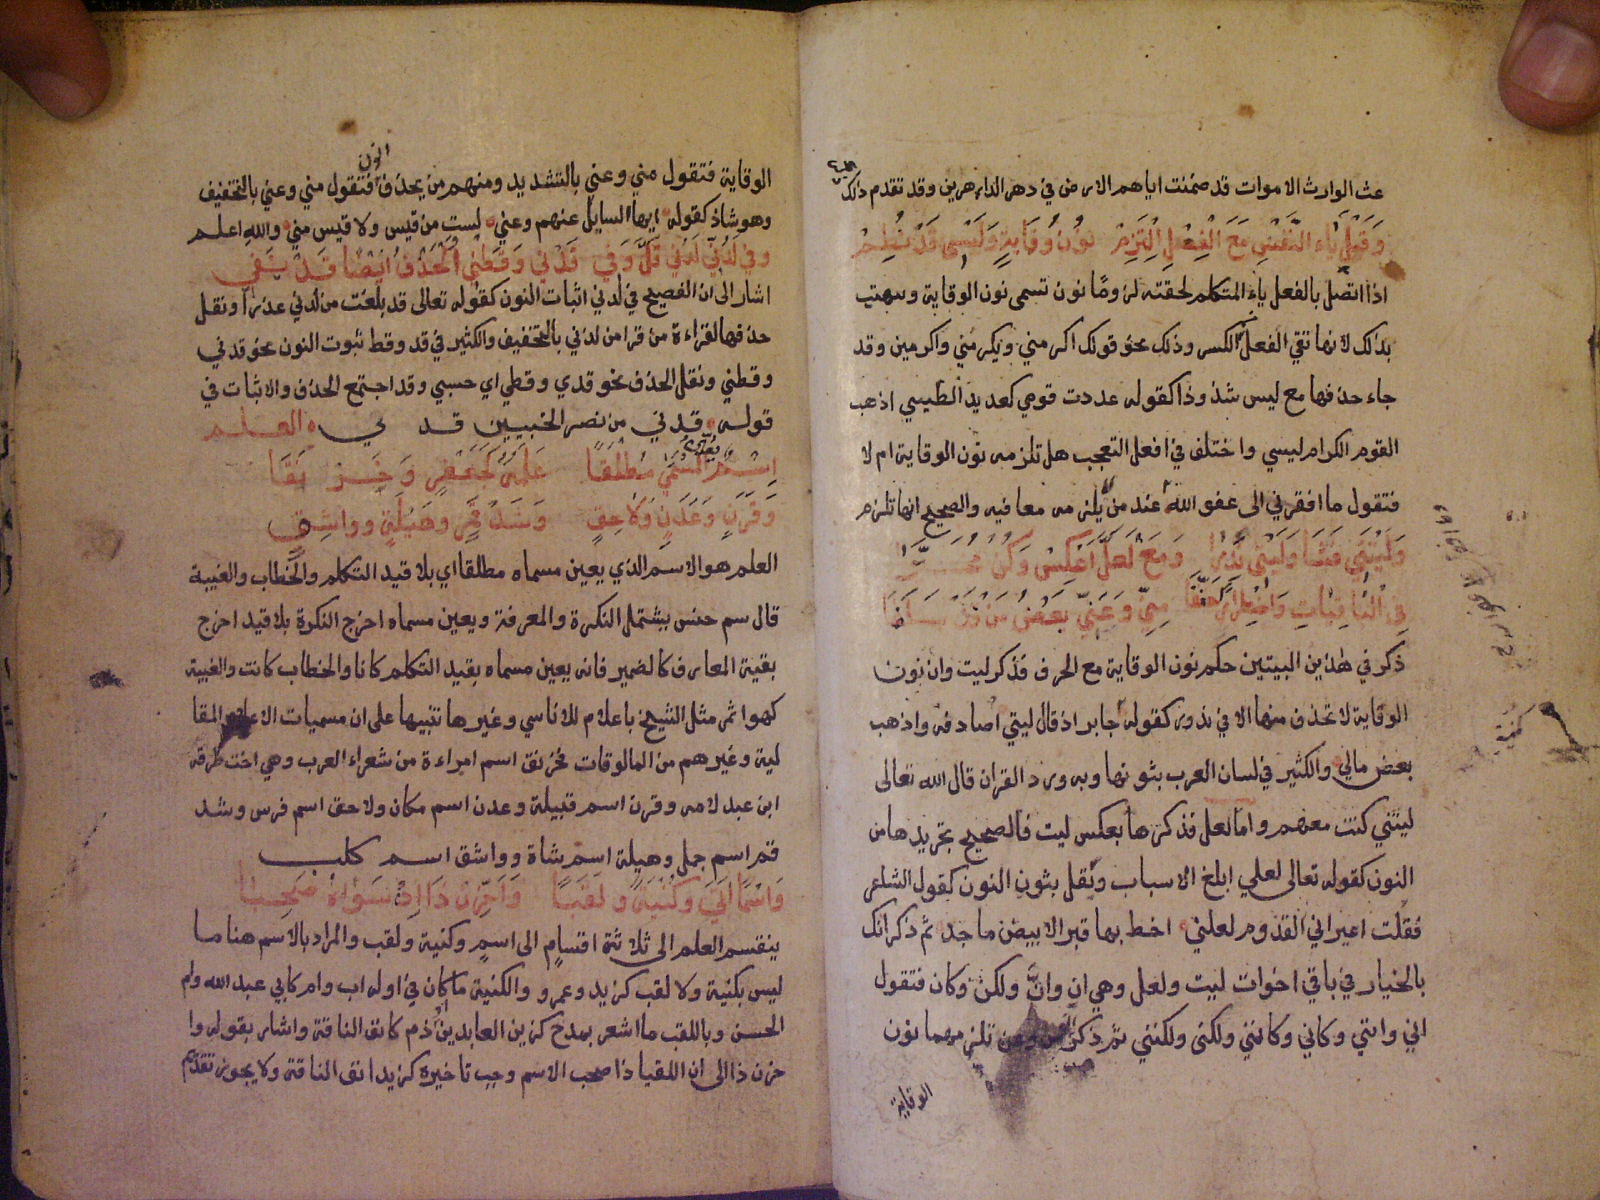 عث الوارث الاموات قد ضمنت اياهم الارض في دهر الدهارير وقد تقدم ذلك
وقبل ياء النفس مع الفعل التزم نون وقاية وليسي قد نظم
اذا اتصل بالفعل ياء المتكلم لحقته لزوما نون تسمى نون الوقاية وسميت
بذلك لانها تقي الفعل الكسر وذلك نحو قولك اكرمني ويكرمني واكرمني وقد
جاء حذفها مع ليس شذوذا كقوله عددت قومي كعديد الطيس اذ ذهب
القوم الكرام ليسي واختلف في افعل التعجب هل تلزمه نون الوقاية ام لا
فتقول ما افقرني الى عفو الله عند من يلزمه معافيه والصحيح انها تلزم
وليتني فشا وليتي ندرا ومع لعل اعكس وكن مخيرا
في الباقيات واضطرارا خففا مني وعني بعض من قد سلفا
ذكر في هذين البيتين حكم نون الوقاية مع الحرف فذكر ليت وان نون
الوقاية لا تحذف منها الا في ندور كقوله جابر اذ قال ليتي اصادفه واذهب
بعض مالي والكثير في لسان العرب بثوتها وبه ورد القران قال الله تعالى
ليتني كنت معهم واما لعل فذكر ها بعكس ليت فالصحيح تجريدها من
النون كقوله تعالى لعلي ابلغ الاسباب ونقل بثون النون كقول الشاعر
فقلت اعيراني القدوم لعلني اخط بها قبرا لابيض ماجد ثم ذكر انك
بالخيار في باقي اخوات ليت ولعل وهي ان وان ولكن وكان فتقول
اني وانني وكاني وكانني ولكني ولكنني ثم ذكر ان من وعن تلزمهما نون
الوقاية
الوقاية فتقول مني وعني بالتشديد ومنهم من يحذف النون فتقول مني وعني بالتخفيف
وهو شاذ كقوله ايها السايل عنهم وعني لست من قيس ولا قيس مني والله اعلم
وفي لدني لدني قل وفي قدني وقطني الحذف ايضا قد يفي
اشار الى ان الفصيح في لدني اثبات النون كقوله تعالى قد بلغت من لدني عذرا ونقل
حذفها لقراءة من قرا من لدني بالتخفيف والكثير في قد وقط ثبوت النون نحو قدني
وقطني ونقل الحذف نحو قدي وقطي اي حسبي وقد اجتمع الحذف والاثبات في
قوله قدني من نصر الخبيبين قدي العلم
اسم يعين المسمى مطلقا علمه كجعفر وخرنقا
وقرن وعدن ولاحق وشذقم وهيلة وواشق
العلم هو الاسم الذي يعين مسماه مطلقا اي بلا قيد التكلم والخطاب والغيبة
قال سم جنس يشتمل النكرة والمعرفة ويعين مسماه اخرج النكرة بلا قيد اخرج
بقية المعارف كالضمير فانه يعين مسماه بقيد التكلم كانا والخطاب كانت والغيبة
كهو اثم مثل الشيخ باعلام للاناسي وغيرها تنبيها على ان مسميات الاعلام العقا
لية وغيرهم من المالوفات فخرنق اسم امراءة من شعراء العرب وهي اخت طرفة
ابن عبد لامه وقرن اسم قبيلة وعدن اسم مكان ولاحق اسم فرس وشذ
قم اسم جمل وهيلة اسم شاة وواشق اسم كلب
واسما اتى وكنية ولقبا واخرن ذا ان سواه صحبا
ينقسم العلم الى ثلاثة اقسام الى اسم وكنية ولقب والمراد بالاسم هنا ما
ليس بكنية ولا لقب كزيد وعمرو والكنية ما كان في اوله اب وام كابي عبد الله وام
الحسن وباللقب ما اشعر بمدح كزين العابدين او ذم كانف الناقة واشار بقوله وا
خرن ذا الى ان اللقب اذا صحب الاسم وجب تاخيره كزيد انف الناقة ولا يجوز تقدم